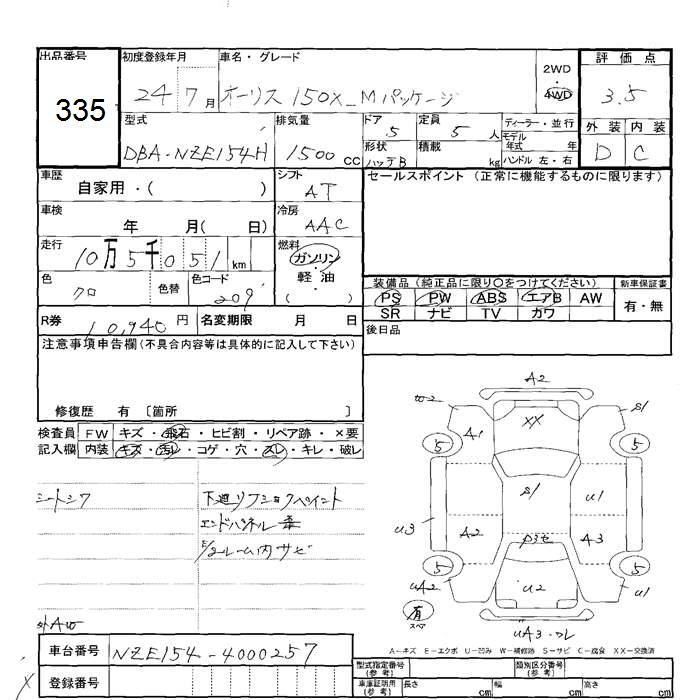 出品番号 初度登録年月 車名・グレード 2WD 評価点
335 24 7月 オーリス 150X_Mパッケージ ・ 4WD 3.5
型式 排気量 ドア 定員 ディーラー・並行 外装 内装
DBA-NZE154H 1500 CC 5 5 人 モデル年式 年 D C
形状 ハッチB 積載 kg ハンドル 左・右
車歴 自家用・( ) シフト AT セールスポイント (正常に機能するものに限ります)
車検 年 月( 日) 冷房 AAC
走行 10万5千051 km 燃料 ガソリン・軽・油
色 クロ 色替 色コード 209
装備品 (純正品に限り○をつけてください) 新車保証書
PS PW ABS エアB AW 有・無
SR ナビ TV カワ
R券 10,940円 名変期限 月 日 後日品
注意事項申告欄(不具合内容等は具体的に記入して下さい)
修復歴 有 〔箇所 〕
検査員 FW キズ・飛石・ヒビ割・リペア跡・×要
記入欄 内装 キズ・汚レ・コゲ・穴・スレ・キレ・破レ
シートシワ 下廻リフショクペイント
エンドパネル
ルーム内サビ
A2
W2 A1 XX S1
5 5
S1 U1
U3 A2 A3
5 5
UA2 U2 U1
有 スペア
UA3・ワレ
A-キズ E-エクボ U-凹み W-補修跡 S-サビ C-腐食 XX-交換済
車台番号 NZE154-4000257
登録番号
型式指定番号 (参考) 類別区分番号 (参考)
車庫証明用 (参考) 長さ cm 幅 cm 高さ cm